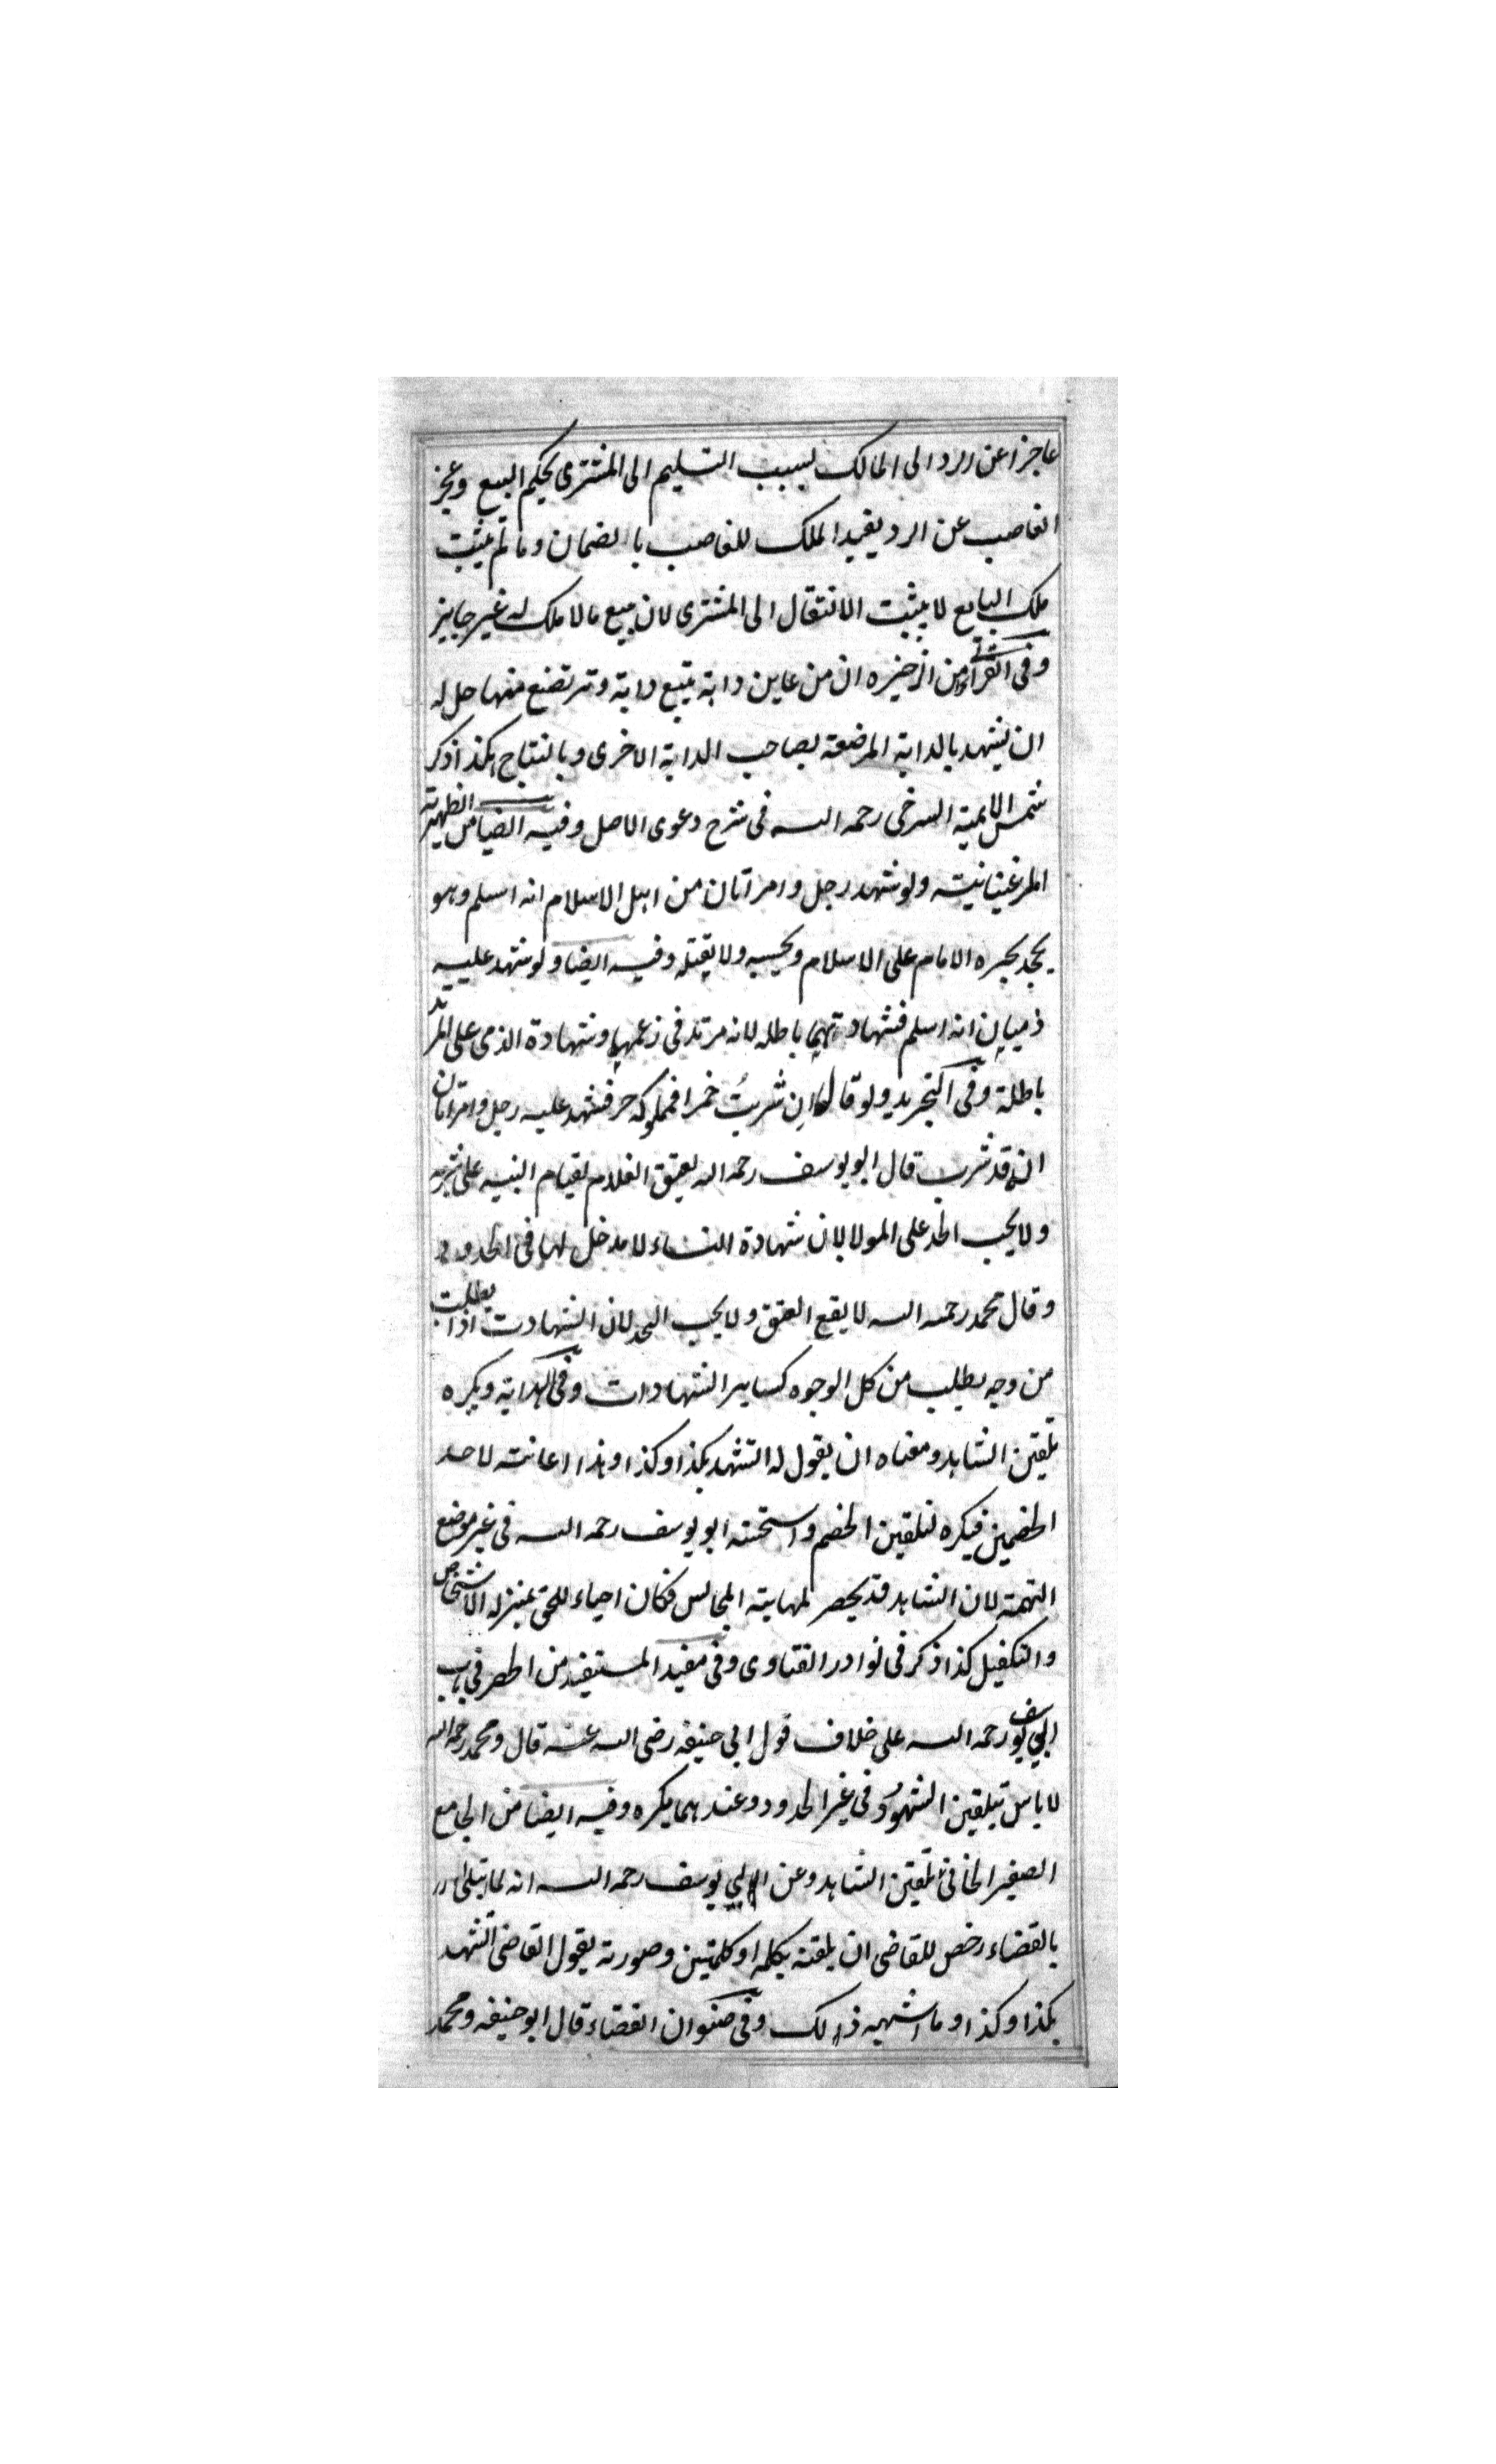 عاجزا عن الرد الى المالك بسبب التسليم الى المشترى بحكم البيع وعجز
الغاصب عن الرد يفيد الملك للغاصب بالضمان وما لم يثبت
ملك البايع لا يثبت الانتقال الى المشترى لان بيع مالا ملك له غير جايز
وفى من الذخيره ان من عاين دابة يتبع دابة وترتضع منها حل له
ان يشهد بالدابة المرضعة لصاحب الدابة الاخرى وبالنتاج هكذا ذكر
شمس الايمة السرخى رحمه الله فى شرح دعوى الاصل وفيه ايضا من الظهيرية
المرغينانية ولو شهد رجل وامراتان من اهل الاسلام انه اسلم وهو
يجحد يجبره الامام على الاسلام ويحبسه ولا يقتله وفيه ايضا ولو شهد عليه
ذميان انه اسلم فشهادتهما باطله لانه مرتد فى زعمهما وشهادة الذمى على المرتد
باطلة وفى التجريد ولو قال ان شربت خمرا فمملوكه حر فشهد عليه رجل وامراتان
انه قد شرب قال ابو يوسف رحمه الله يعتق الغلام لقيام البنيه على شربه
ولا يجب الحد على المولا لان شهادة النساء لا مدخل لها فى الحدود
وقال محمد رحمه الله لا يقع العتق ولا يجب الحد لان الشهادت اذا بطلت
من وجه بطلب من كل الوجوه كساير الشهادات وفى الهداية ويكره
تلقين الشاهد ومعناه ان يقول له اتشهد بكذا وكذا وهذا اعانته لاحد
الخصمين فيكره لتلقين الخصم واستحسنه ابو يوسف رحمه الله فى غير موضع
التهمة لان الشاهد قد يحصر لمهابته المجالس فكان احياء للحق بمنزله الاشخاص
والتكفيل كذا ذكر فى نوادر الفتاوى وفى مفيد المستفيد من الحصر فى باب
ابي يوسف رحمه الله على خلاف قول ابى حنيفه رضى الله عنه قال ومحمد رحمه الله
لا باس بتلقين الشهود فى غير الحدود وعندهما يكره وفيه ايضا من الجامع
الصغير الخانى تلقين الشاهد وعن ابي يوسف رحمه الله انه لما ابتلى
بالقضاء رخص للقاضى ان يلقنه بكلمه او كلمتين وصورته يقول القاضى اتشهد
بكذا وكذا وما اشبهه ذلك وفى صنوان القضاء قال ابو حنيفه ومحمد